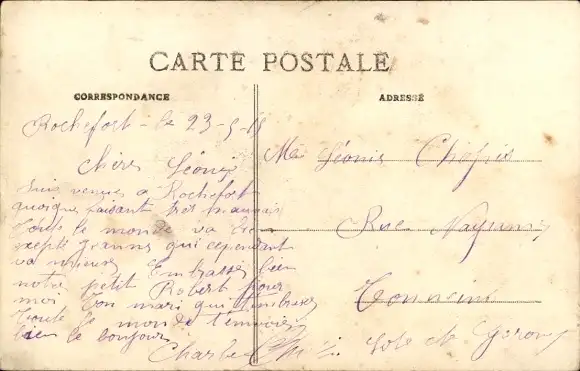 CARTE POSTALE
CORRESPONDANCE
ADRESSE
Rochefort - le 23-5-15
Chère Léonie
Suis venue a Rochefort
quoique faisant très mauvais
Tout le monde va bien
excepté
qui cependant
va mieux Embrasse bien
notre petit Robert pour
moi Ton mari qui
Tout le monde
bien le bonjour
Charles
Léonie
Rue
Tonneins
Lot et Garonne